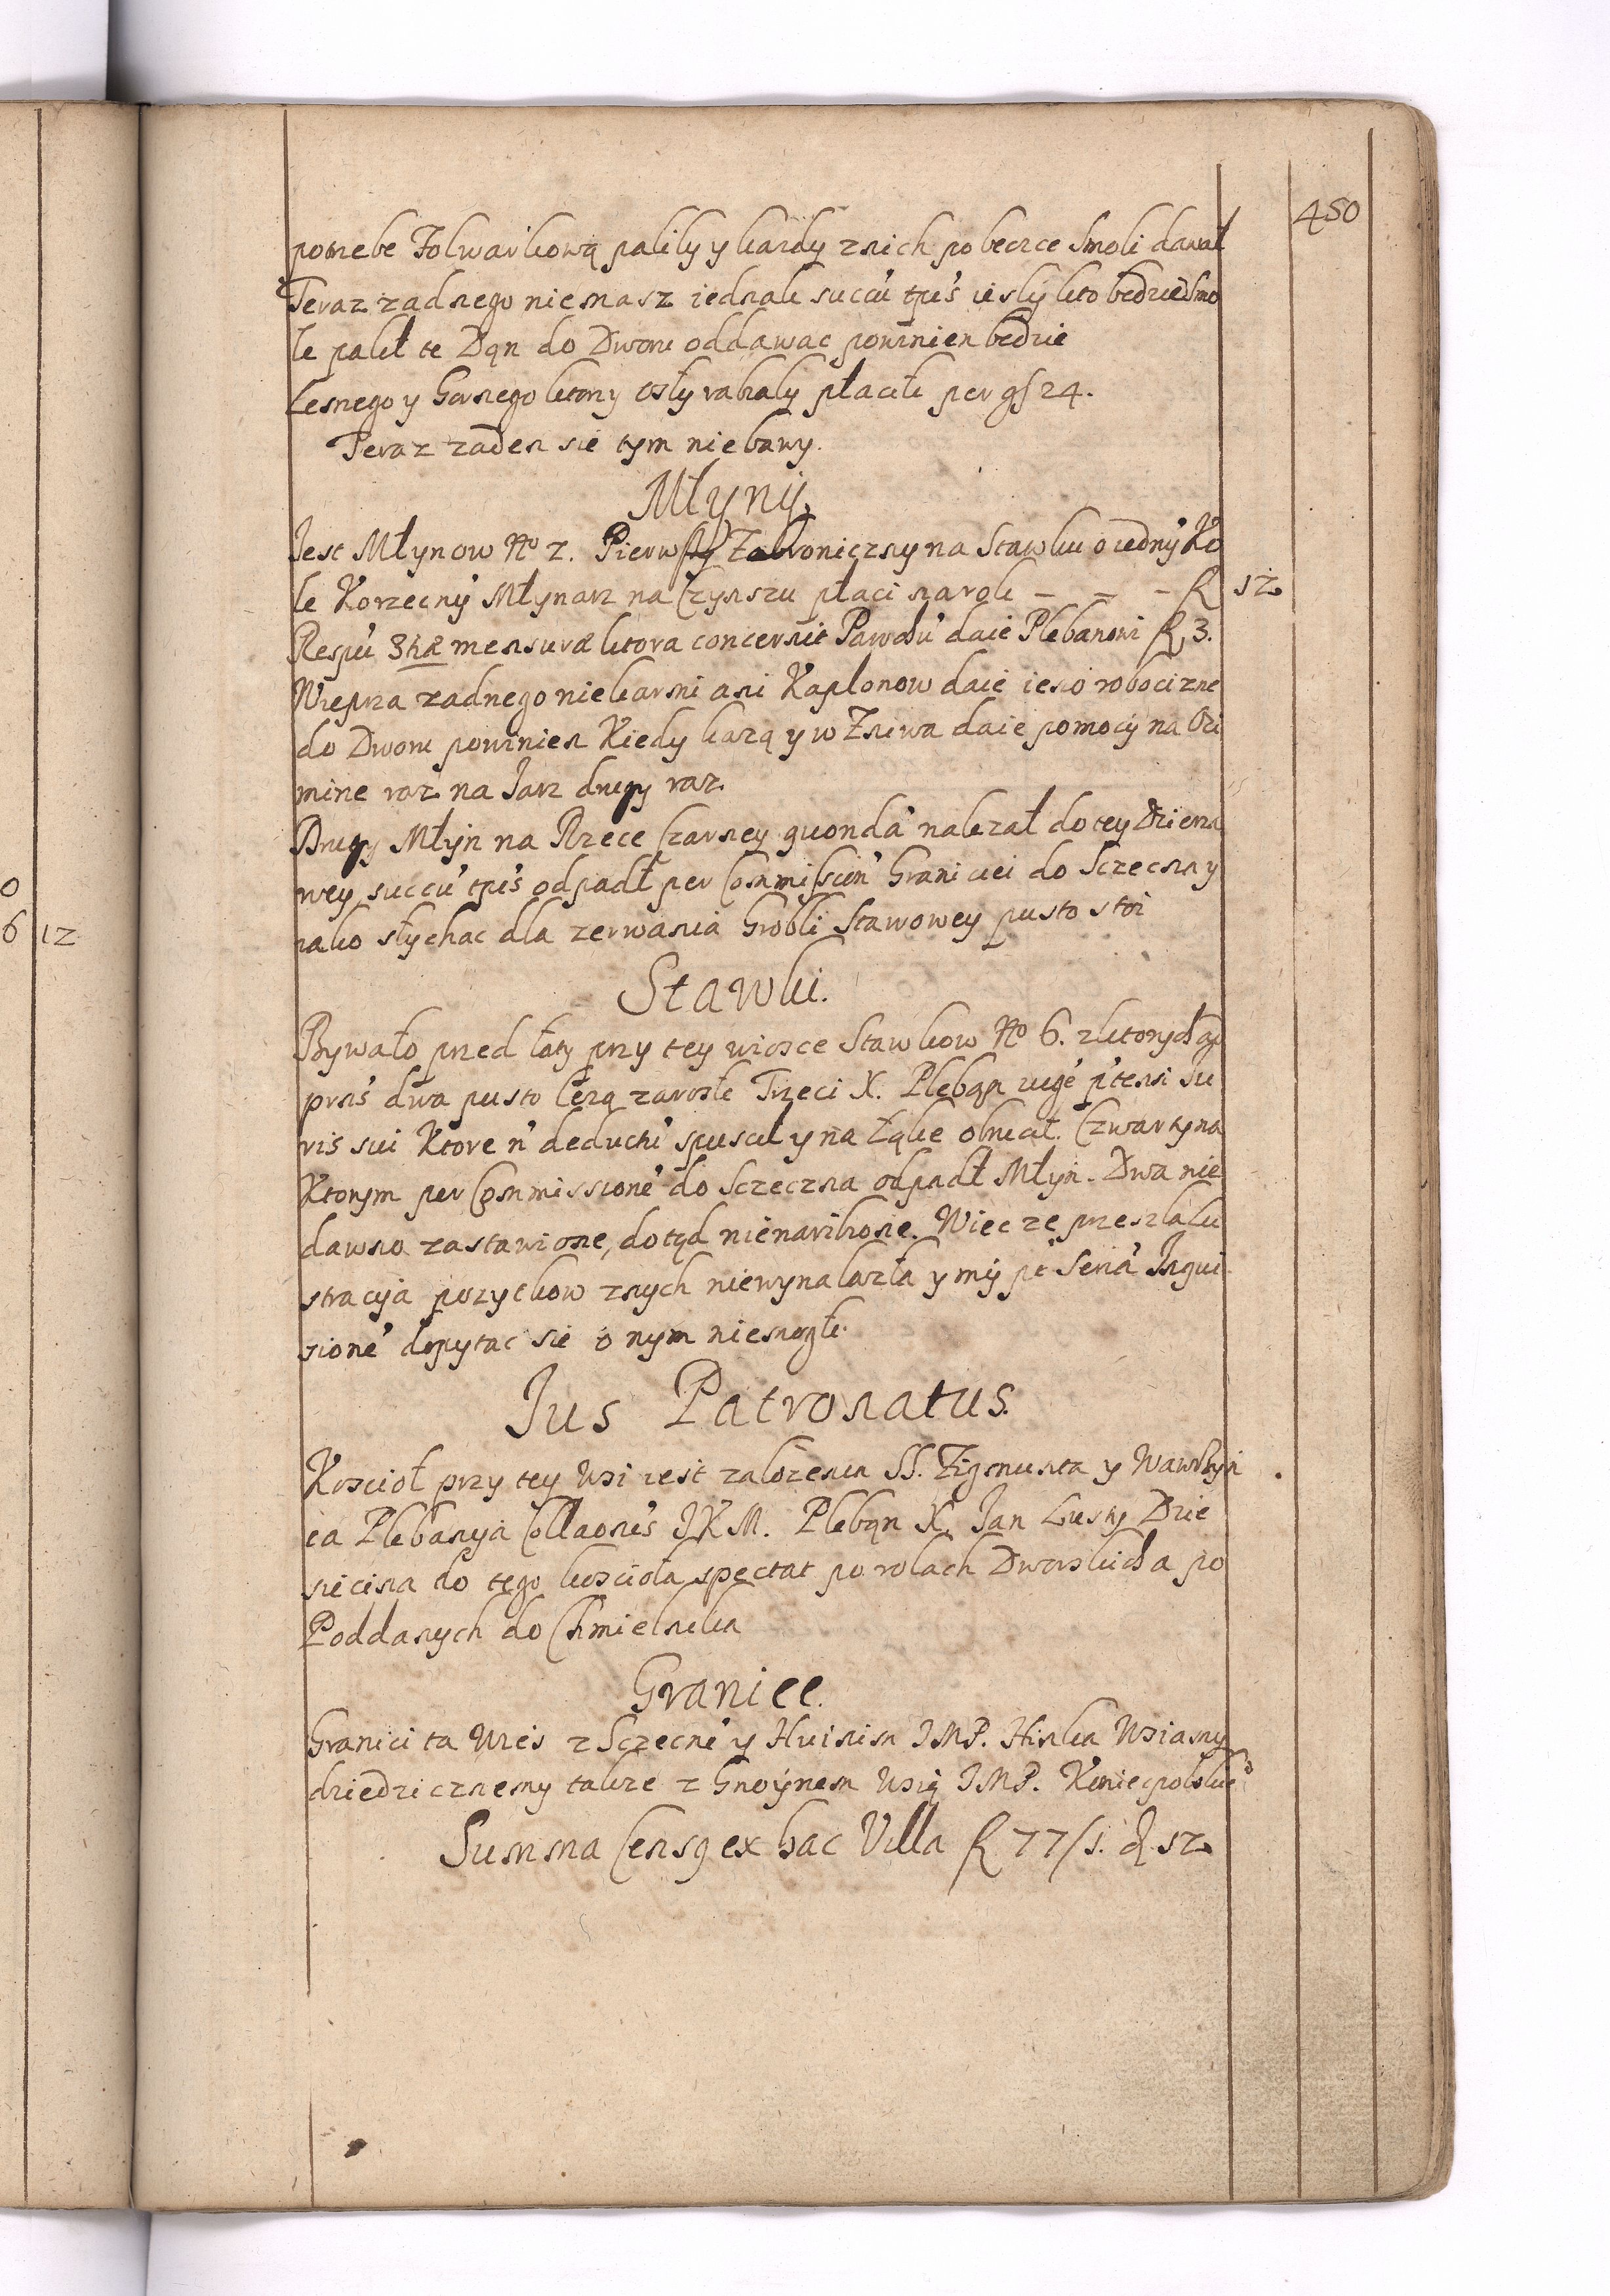 450
potrzebe Folwarkową palily y kazdy z nich po beczce smoli dawał
Teraz zadnego niemasz iednak succu tpis iesly kto będzie Smo
le palił te Dań do Dworu oddawac powinien bedzie
Lesnego y Gornego ktory osły rabaly płacili per gſ 24.
Teraz zaden sie tym niebawy.
Młyny.
Jest Młynow No 2. Pierwszy Zabroniczny na Stawku o iedny Ko
le Korzecny Młynarz na Czynszu płaci na rok - - - f 12
Respu 3tiæ mensuræ ktora concernit Pawołu daie Plebanowi f 3.
Wieprza zadnego niekarmi ani Kapłonow daie ieno robocizne
do Dworu powinien Kiedy kazą y w Zniwa daie pomocy na Ozi
mine raz na Jarz drugy raz.
Drugy Młyn na Rzece Czarney quonda nalezał do tey Dzierza
wey succu tpis odpadł per Commissien Graniciei do Sczecna y
iako słychac dla zerwania Grobli Stawowey pusto stoi
Stawki.
Bywało przed laty przy tey wiosce Stawkow No 6. z ktorych a
prns dwa pusto lezą zarosłe Trzeci X. Pleban vige ptensi Iu
ris sui Ktore n deduchi spuscił y na Łąkie obrucił. Czwarty na
Ktorym per Commissione do Sczeczna odpadł Młyn. Dwa nie
dawno zastawione, dotąd nienaribione. Wiec ze przeszla Lu
stracyia pozytkow znych niewynalazła y my pt Seria Inqui
sione dopytac sie o nym niemogli.
Jus Patronatus.
Koscioł przy tey wsi iest załozenia SS. Zigmunta y Wawrzyn
ca Plebanyia Collaonis JKM. Pleban X. Jan Dzie
siecina do tego koscioła spectat po rolach Dworskich a po
Poddanych do Chmielnika
Granice.
Granici ta Wies z Sczecne y Huisim JMP. Wsiamy
dziedzicznemy takze z Gnoynem Wsią JMP. Koniecpolskie
Summa Censq ex hac Villa f 77/1. 12
0
6 12